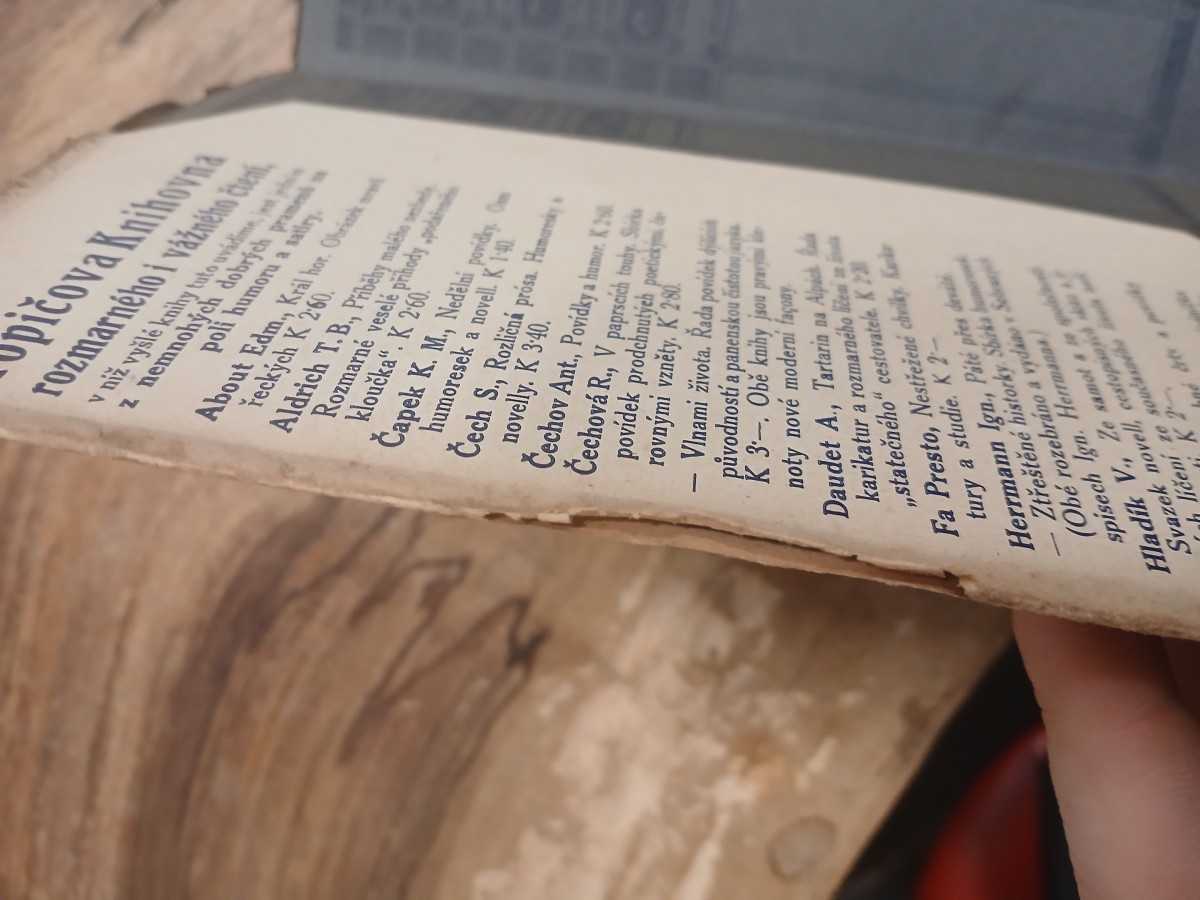 Topičova Knihovna
rozmarného i vážného čtení,
v níž vyšlé knihy tuto uvádíme, jest jedním
z nemnohých dobrých pramenů na
poli humoru a satiry.
About Edm., Král hor. Obrázek mravů
řeckých K 2·60.
Aldrich T. B., Příběhy malého nezbedy.
Rozmarné veselé příhody „podařeného
kloučka“ K 2·60.
Čapek K. M., Nedělní povídky. Osm
humoresek a novell. K 1·40.
Čech S., Rozličná prósa. Humoresky a
novelly. K 3·40.
Čechov Ant., Povídky a humor. K 2·80.
Čechová R., V paprscích touhy. Sbírka
povídek prodchnutých poetickými, čt-
rovnými vzněty. K 2·80.
— Vlnami života. Řada povídek dýšících
původností a panenskou čistotou jazyka.
K 3·—. Obě knihy jsou pravými kle-
noty nové moderní façony.
Daudet A., Tartarin na Alpách. Řada
karikatur a rozmarného líčení ze života
„statečného“ cestovatele. K 2·20.
Fa Presto, Nestřežené chvilky. Karika-
tury a studie. K 2·—
Herrmann Ign., Páté přes deváté.
— Ztřeštěné historky. Sbírka humoresek
(Obé rozebráno a vydáno v Sebraných
spisech Ign. Herrmanna.)
Hladík V., Ze samot a ze
Svazek novell, současného
líčení K 2·—,